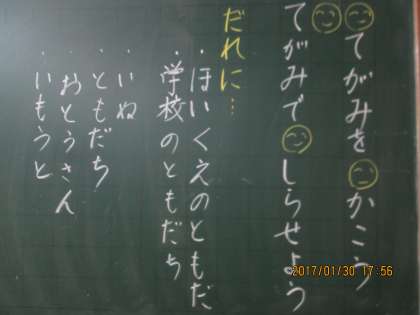 てがみをかこう
てがみでしらせよう
だれに…
・ほいくえのともだ
・学校のともだち
・いね
・ともだち
・おとうさん
・いもうと
2017/01/30 17:56